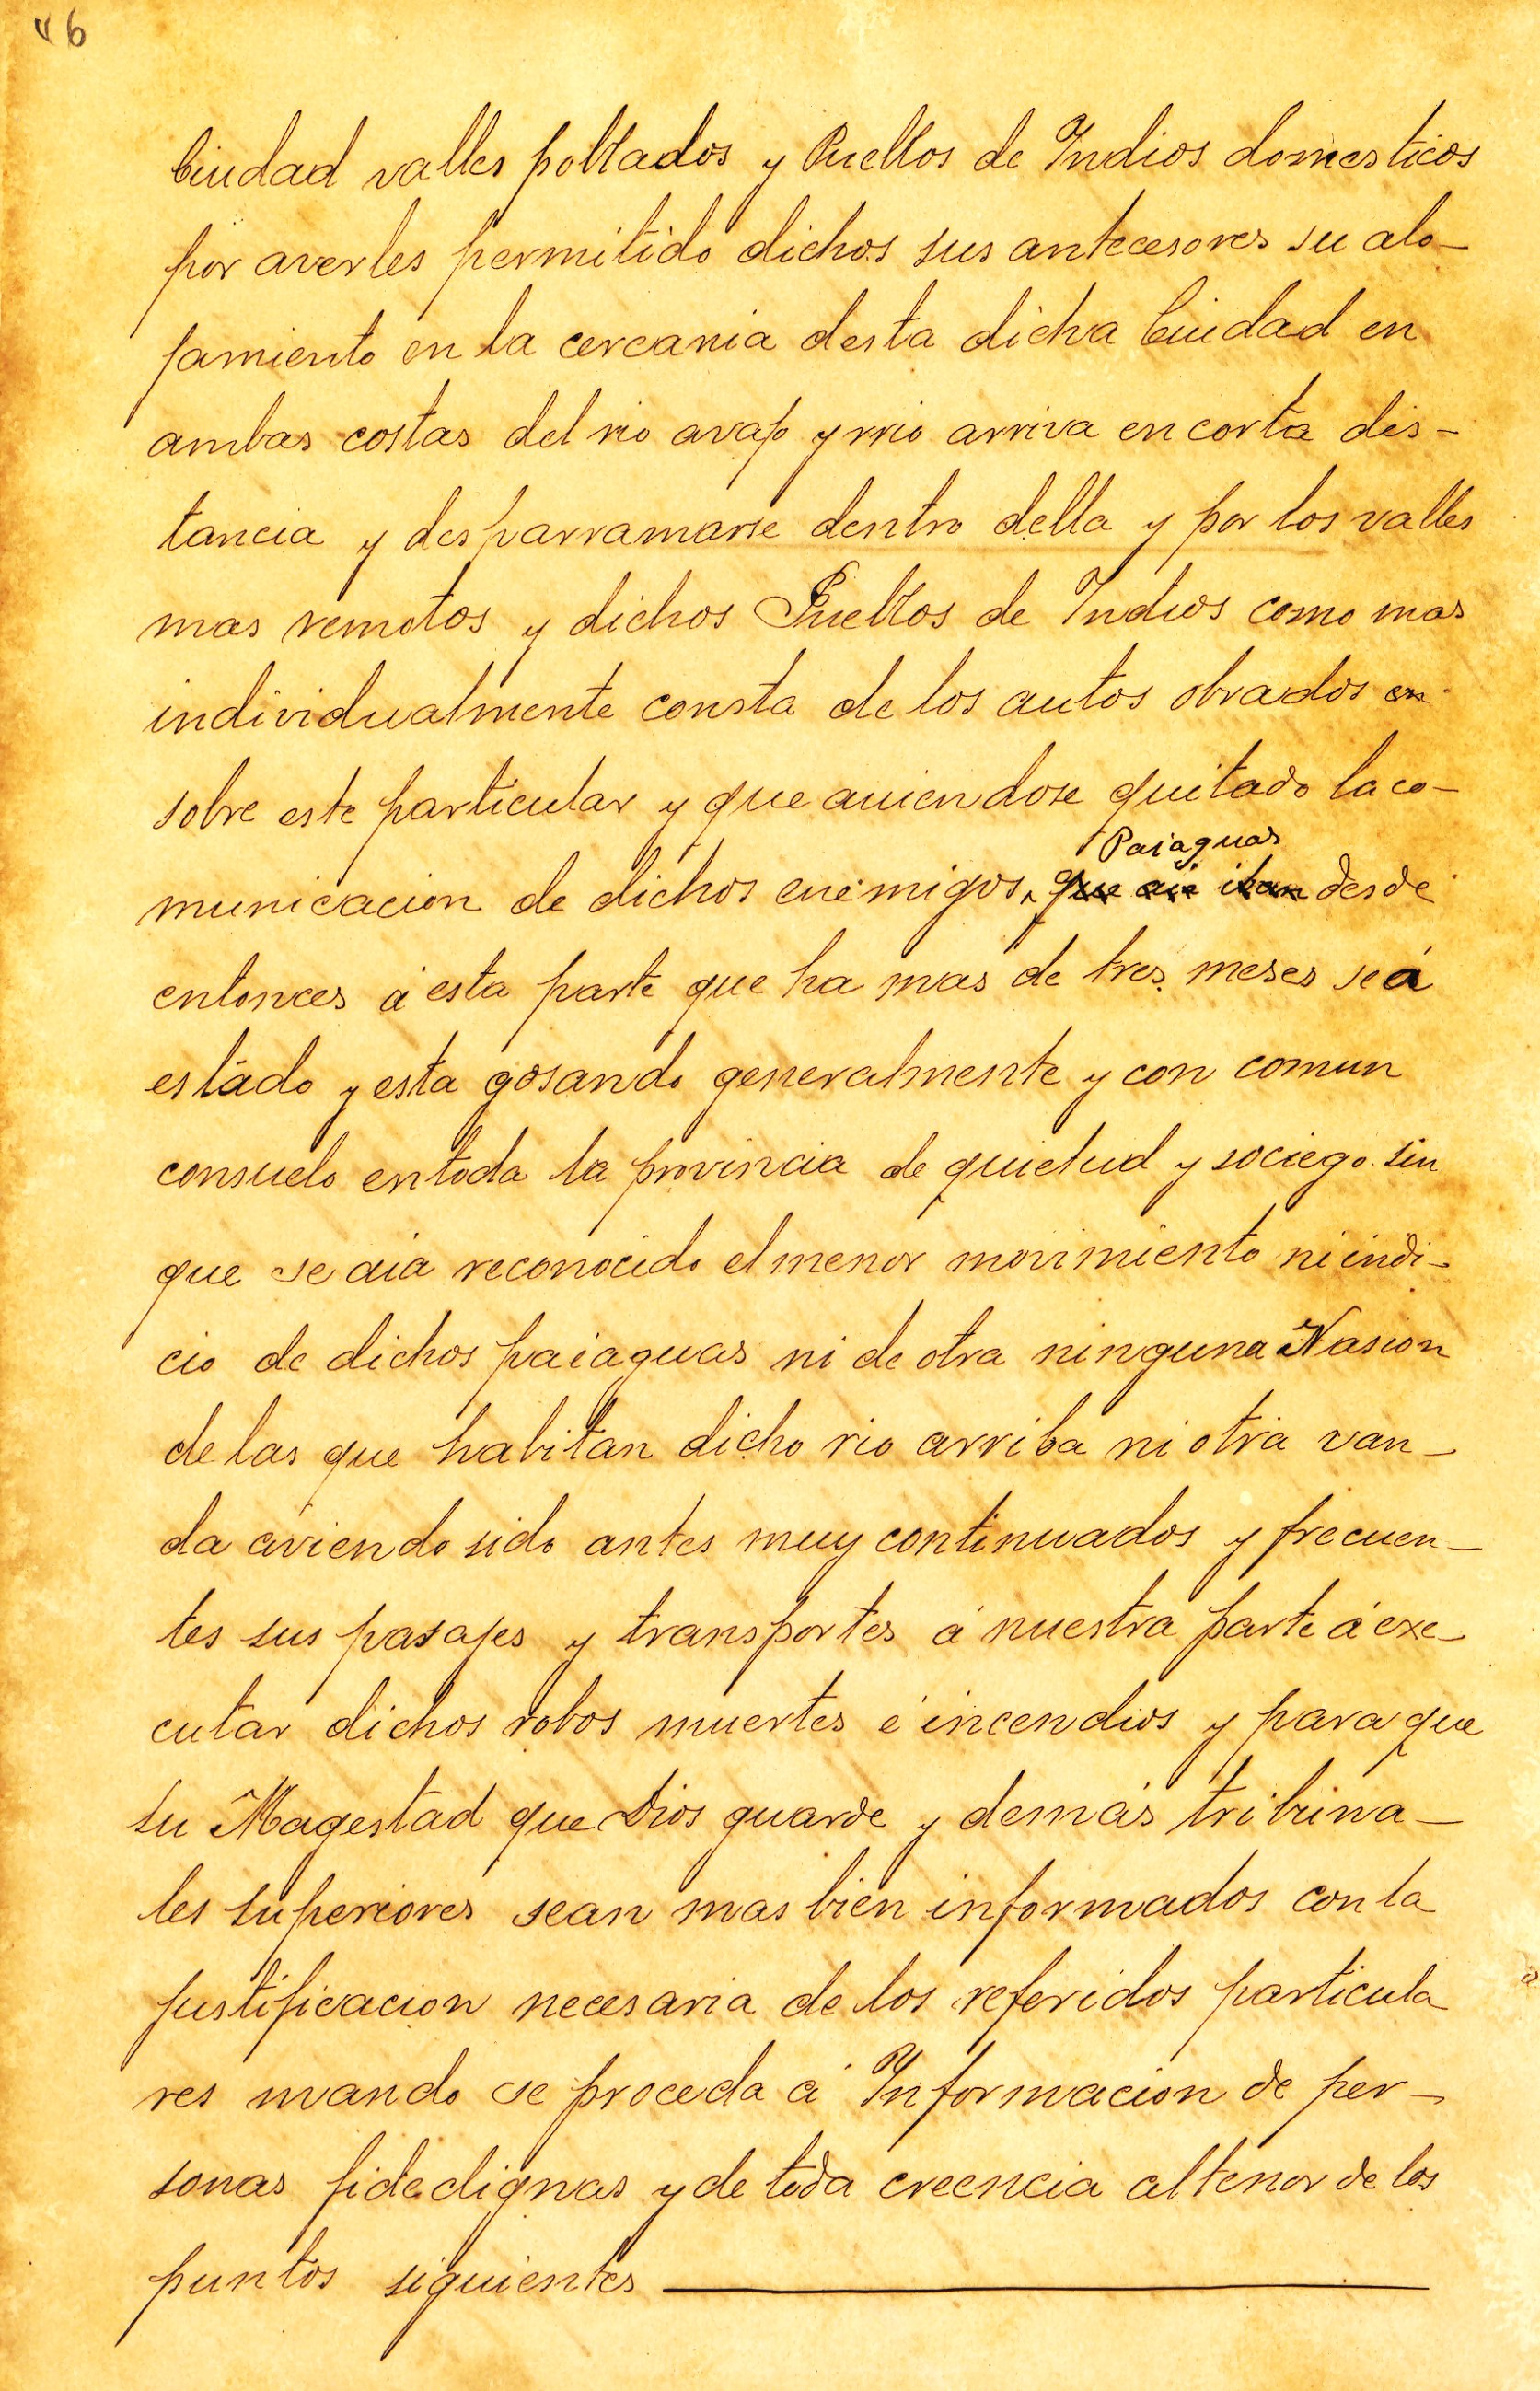 46
Ciudad valles poblados y Pueblos de Indios domesticos
por averles permitido dichos sus antecesores su alo-
jamiento en la cercania desta dicha Ciudad en
ambas costas del rio avajo y rrio arriva en corta dis-
tancia y desparramarse dentro della y por los valles
mas remotos y dichos Pueblos de Indios como mas
individualmente consta de los autos obrados en
sobre este particular y que auiendose quitado la co-
municacion de dichos enemigos Paiaguas desde
entonces á esta parte que ha mas de tres meses se á
estado y esta gosando generalmente y con comun
consuelo en toda la provincia de quietud y sociego sin
que se aia reconocido el menor movimiento ni indi-
cio de dichos paiaguas ni de otra ninguna Nasion
de las que habitan dicho rio arriba ni otra van-
da aviendo sido antes muy continuados y frecuen-
tes sus pasajes y transportes á nuestra parte á exe-
cutar dichos robos muertes é incendios y para que
su Magestad que Dios guarde y demás tribuna-
les superiores sean mas bien informados con la
justificacion necesaria de los referidos particula
res mando se proceda á Informacion de per-
sonas fidedignas y de toda creencia al tenor de los
puntos siguientes